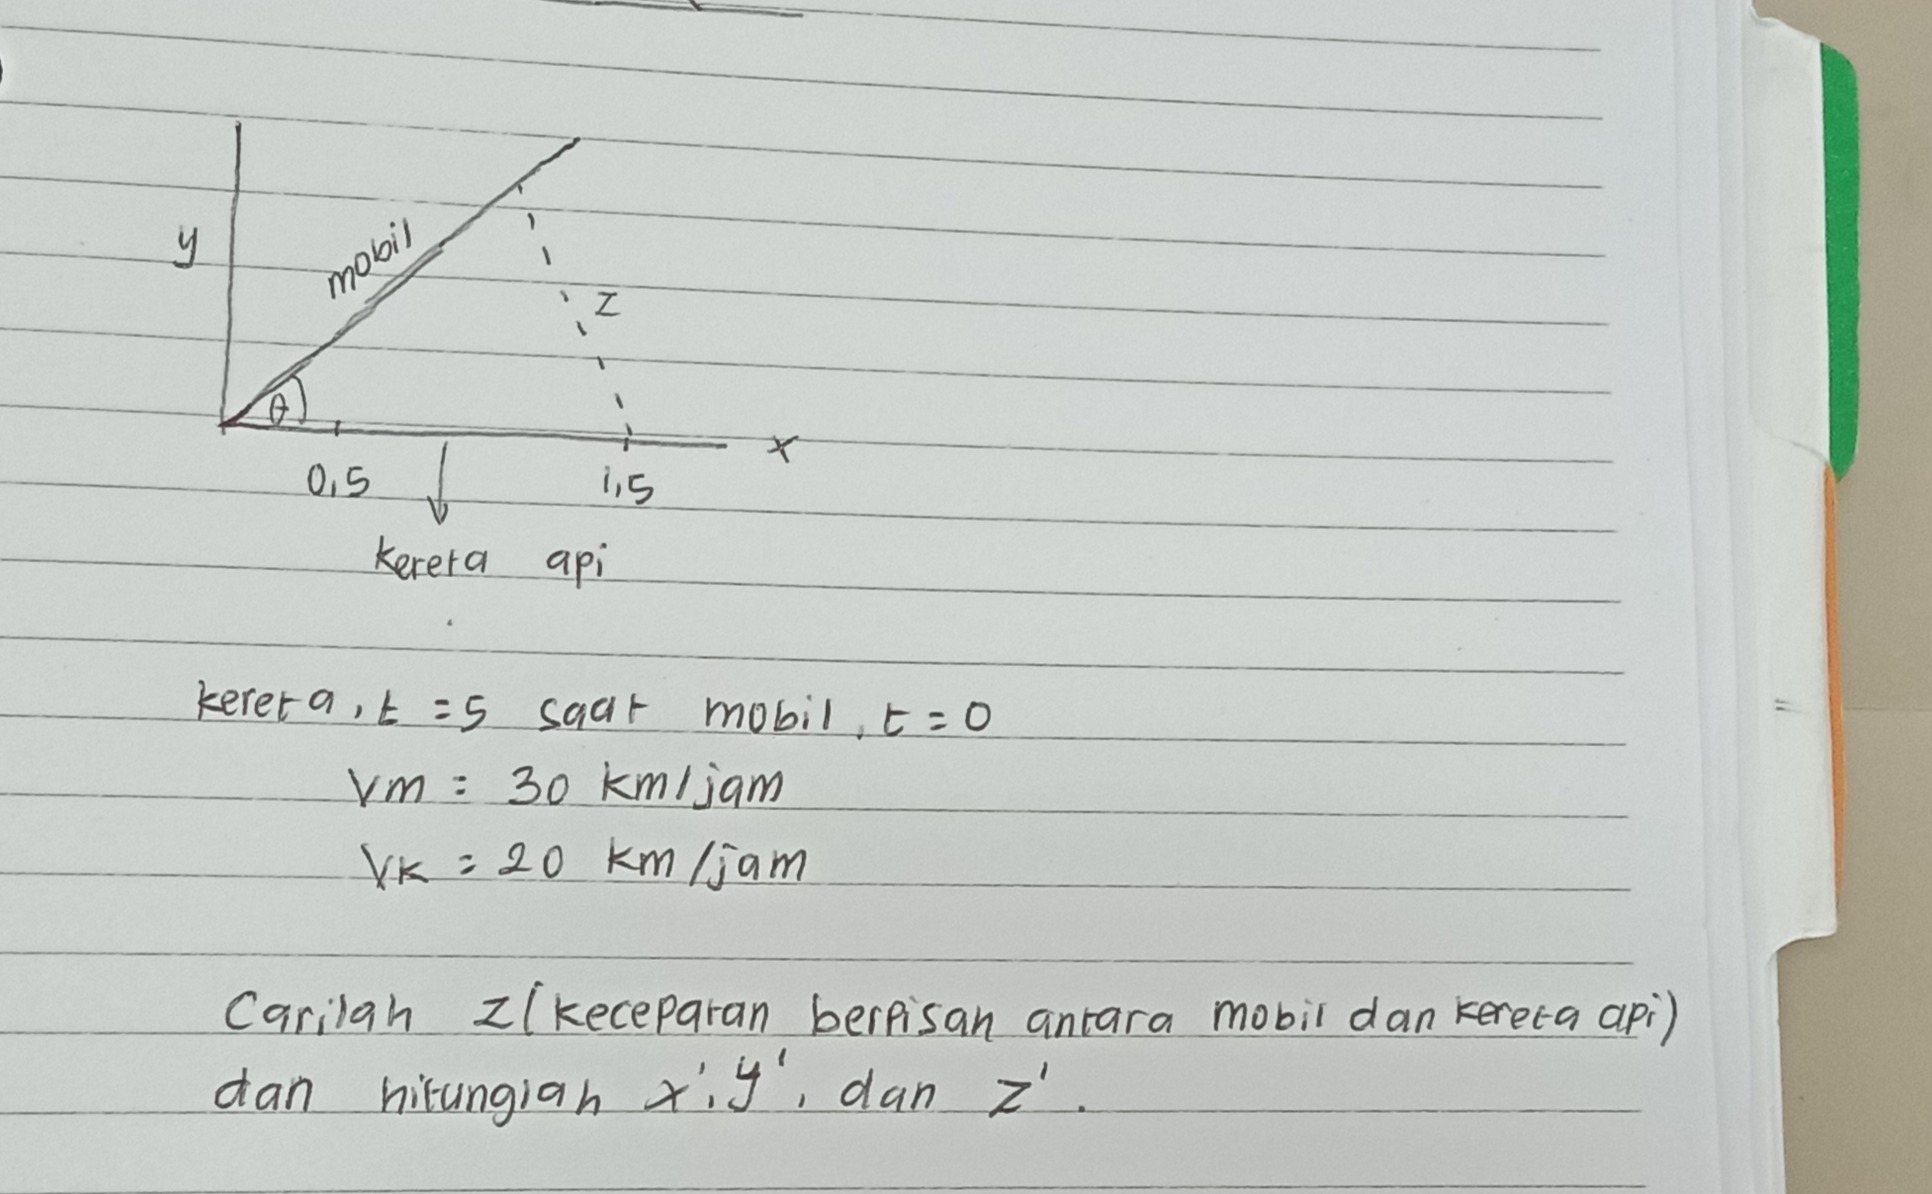 y
mobil
z
θ
x
0,5 1,5
kereta api
kereta, t = 5 saat mobil, t = 0
Vm = 30 km/jam
Vk = 20 km/jam
Carilah z (kecepatan berpisah antara mobil dan kereta api)
dan hitunglah x', y', dan z'.